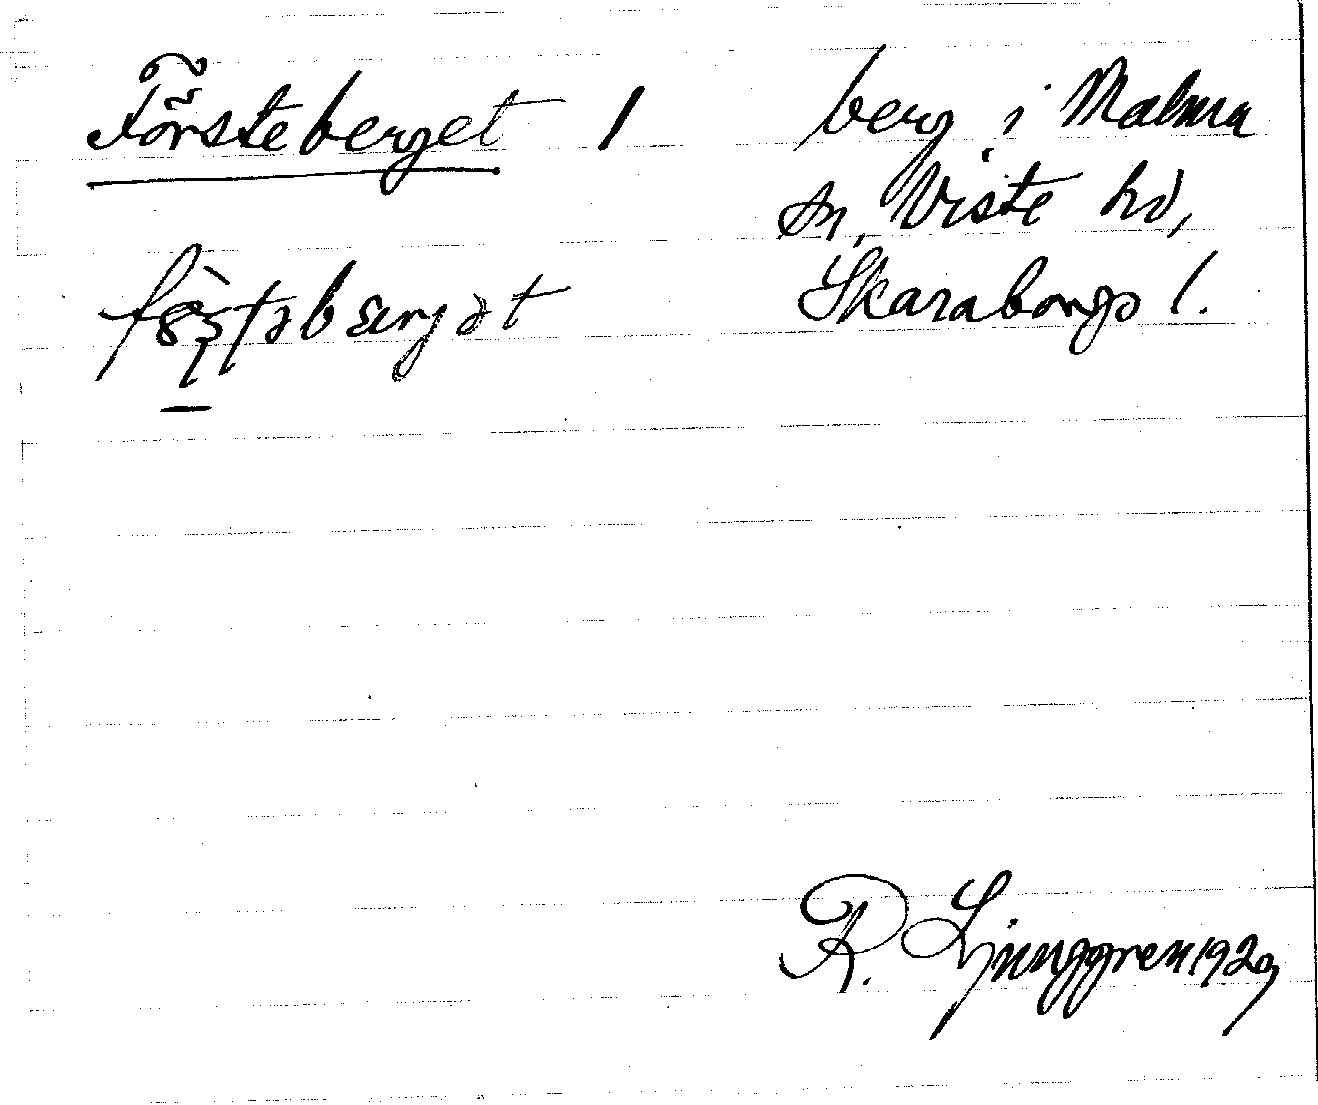 Försteberget 1
berg i Malma
sn, Viste hd,
Skaraborgs l.
R. Ljunggren 1929